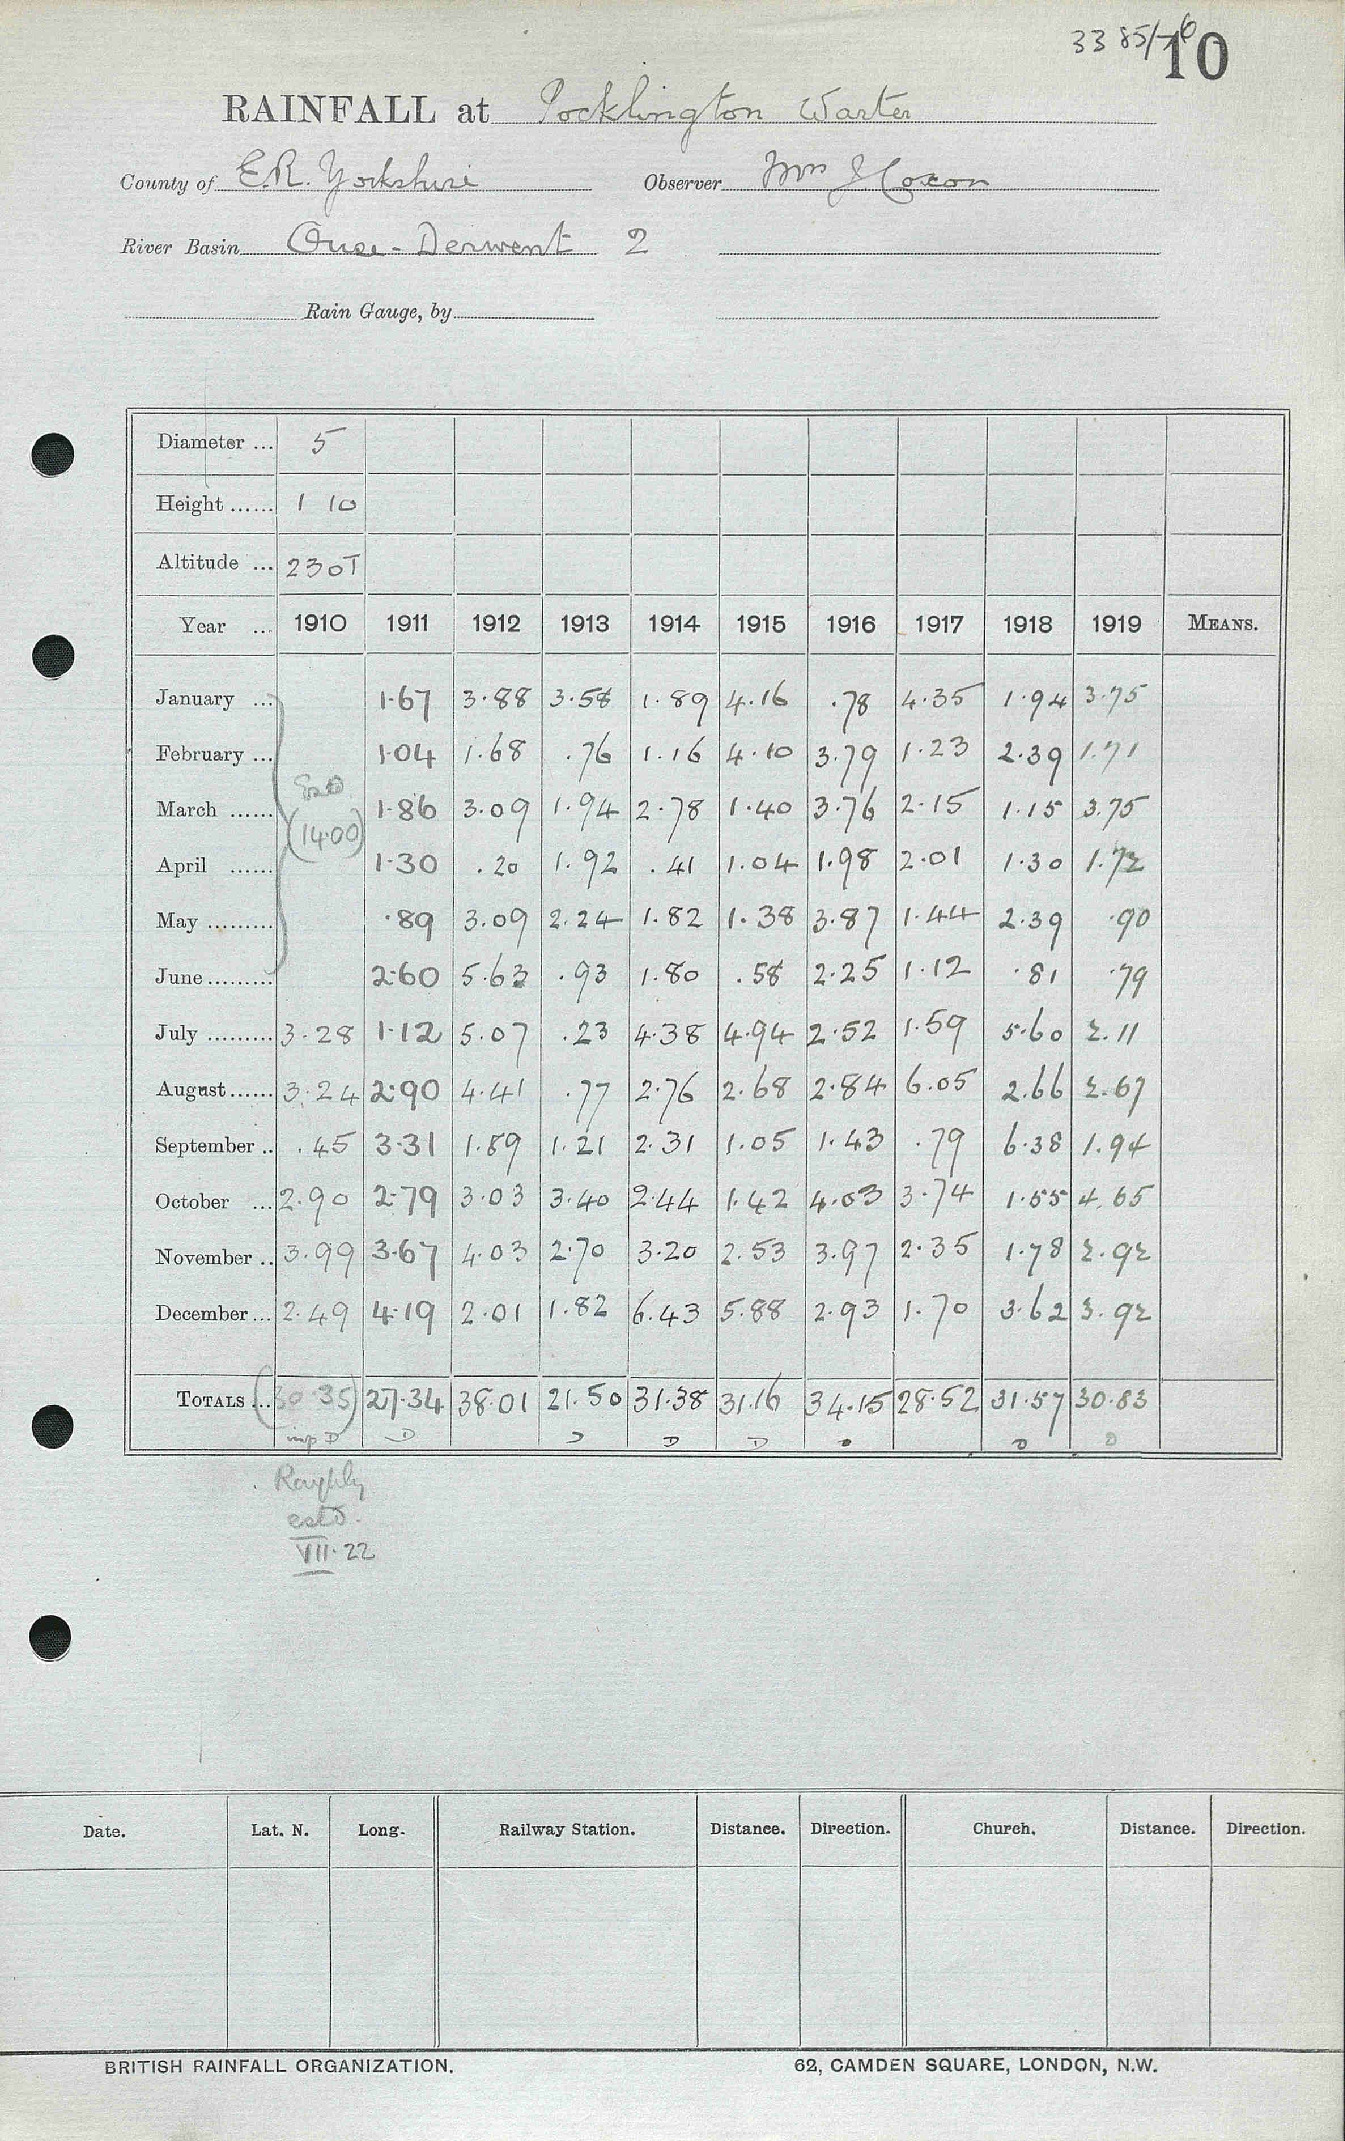 3385/-6
10
RAINFALL at Pocklington Warter
County of E.R. Yorkshire Observer Wm J Coxon
River Basin Ouse - Derwent 2
Rain Gauge, by
Diameter ... 5
Height ...... 1 10
Altitude ... 230T
Year ... 1910 1911 1912 1913 1914 1915 1916 1917 1918 1919 MEANS.
January ... 1.67 3.88 3.58 1.89 4.16 .78 4.35 1.94 3.75
February ... 1.04 1.68 .76 1.16 4.10 3.79 1.23 2.39 1.71
Estd
March ...... 1.86 3.09 1.94 2.78 1.40 3.76 2.15 1.15 3.75
(14.00)
April ...... 1.30 .20 1.92 .41 1.04 1.98 2.01 1.30 1.72
May ......... .89 3.09 2.24 1.82 1.38 3.87 1.44 2.39 .90
June ......... 2.60 5.63 .93 1.80 .58 2.25 1.12 .81 .79
July ......... 3.28 1.12 5.07 .23 4.38 4.94 2.52 1.59 5.60 2.11
August ...... 3.24 2.90 4.41 .77 2.76 2.68 2.84 6.05 2.66 2.67
September .. .45 3.31 1.89 1.21 2.31 1.05 1.43 .79 6.38 1.94
October ... 2.90 2.79 3.03 3.40 2.44 1.42 4.03 3.74 1.55 4.65
November .. 3.99 3.67 4.03 2.70 3.20 2.53 3.97 2.35 1.78 2.92
December ... 2.49 4.19 2.01 1.82 6.43 5.88 2.93 1.70 3.62 3.92
TOTALS ... (30.35) 27.34 38.01 21.50 31.38 31.16 34.15 28.52 31.57 30.83
imp D D D D D D D D
Roughly
estd.
VII.22
Date. Lat. N. Long. Railway Station. Distance. Direction. Church. Distance. Direction.
BRITISH RAINFALL ORGANIZATION. 62, CAMDEN SQUARE, LONDON, N.W.